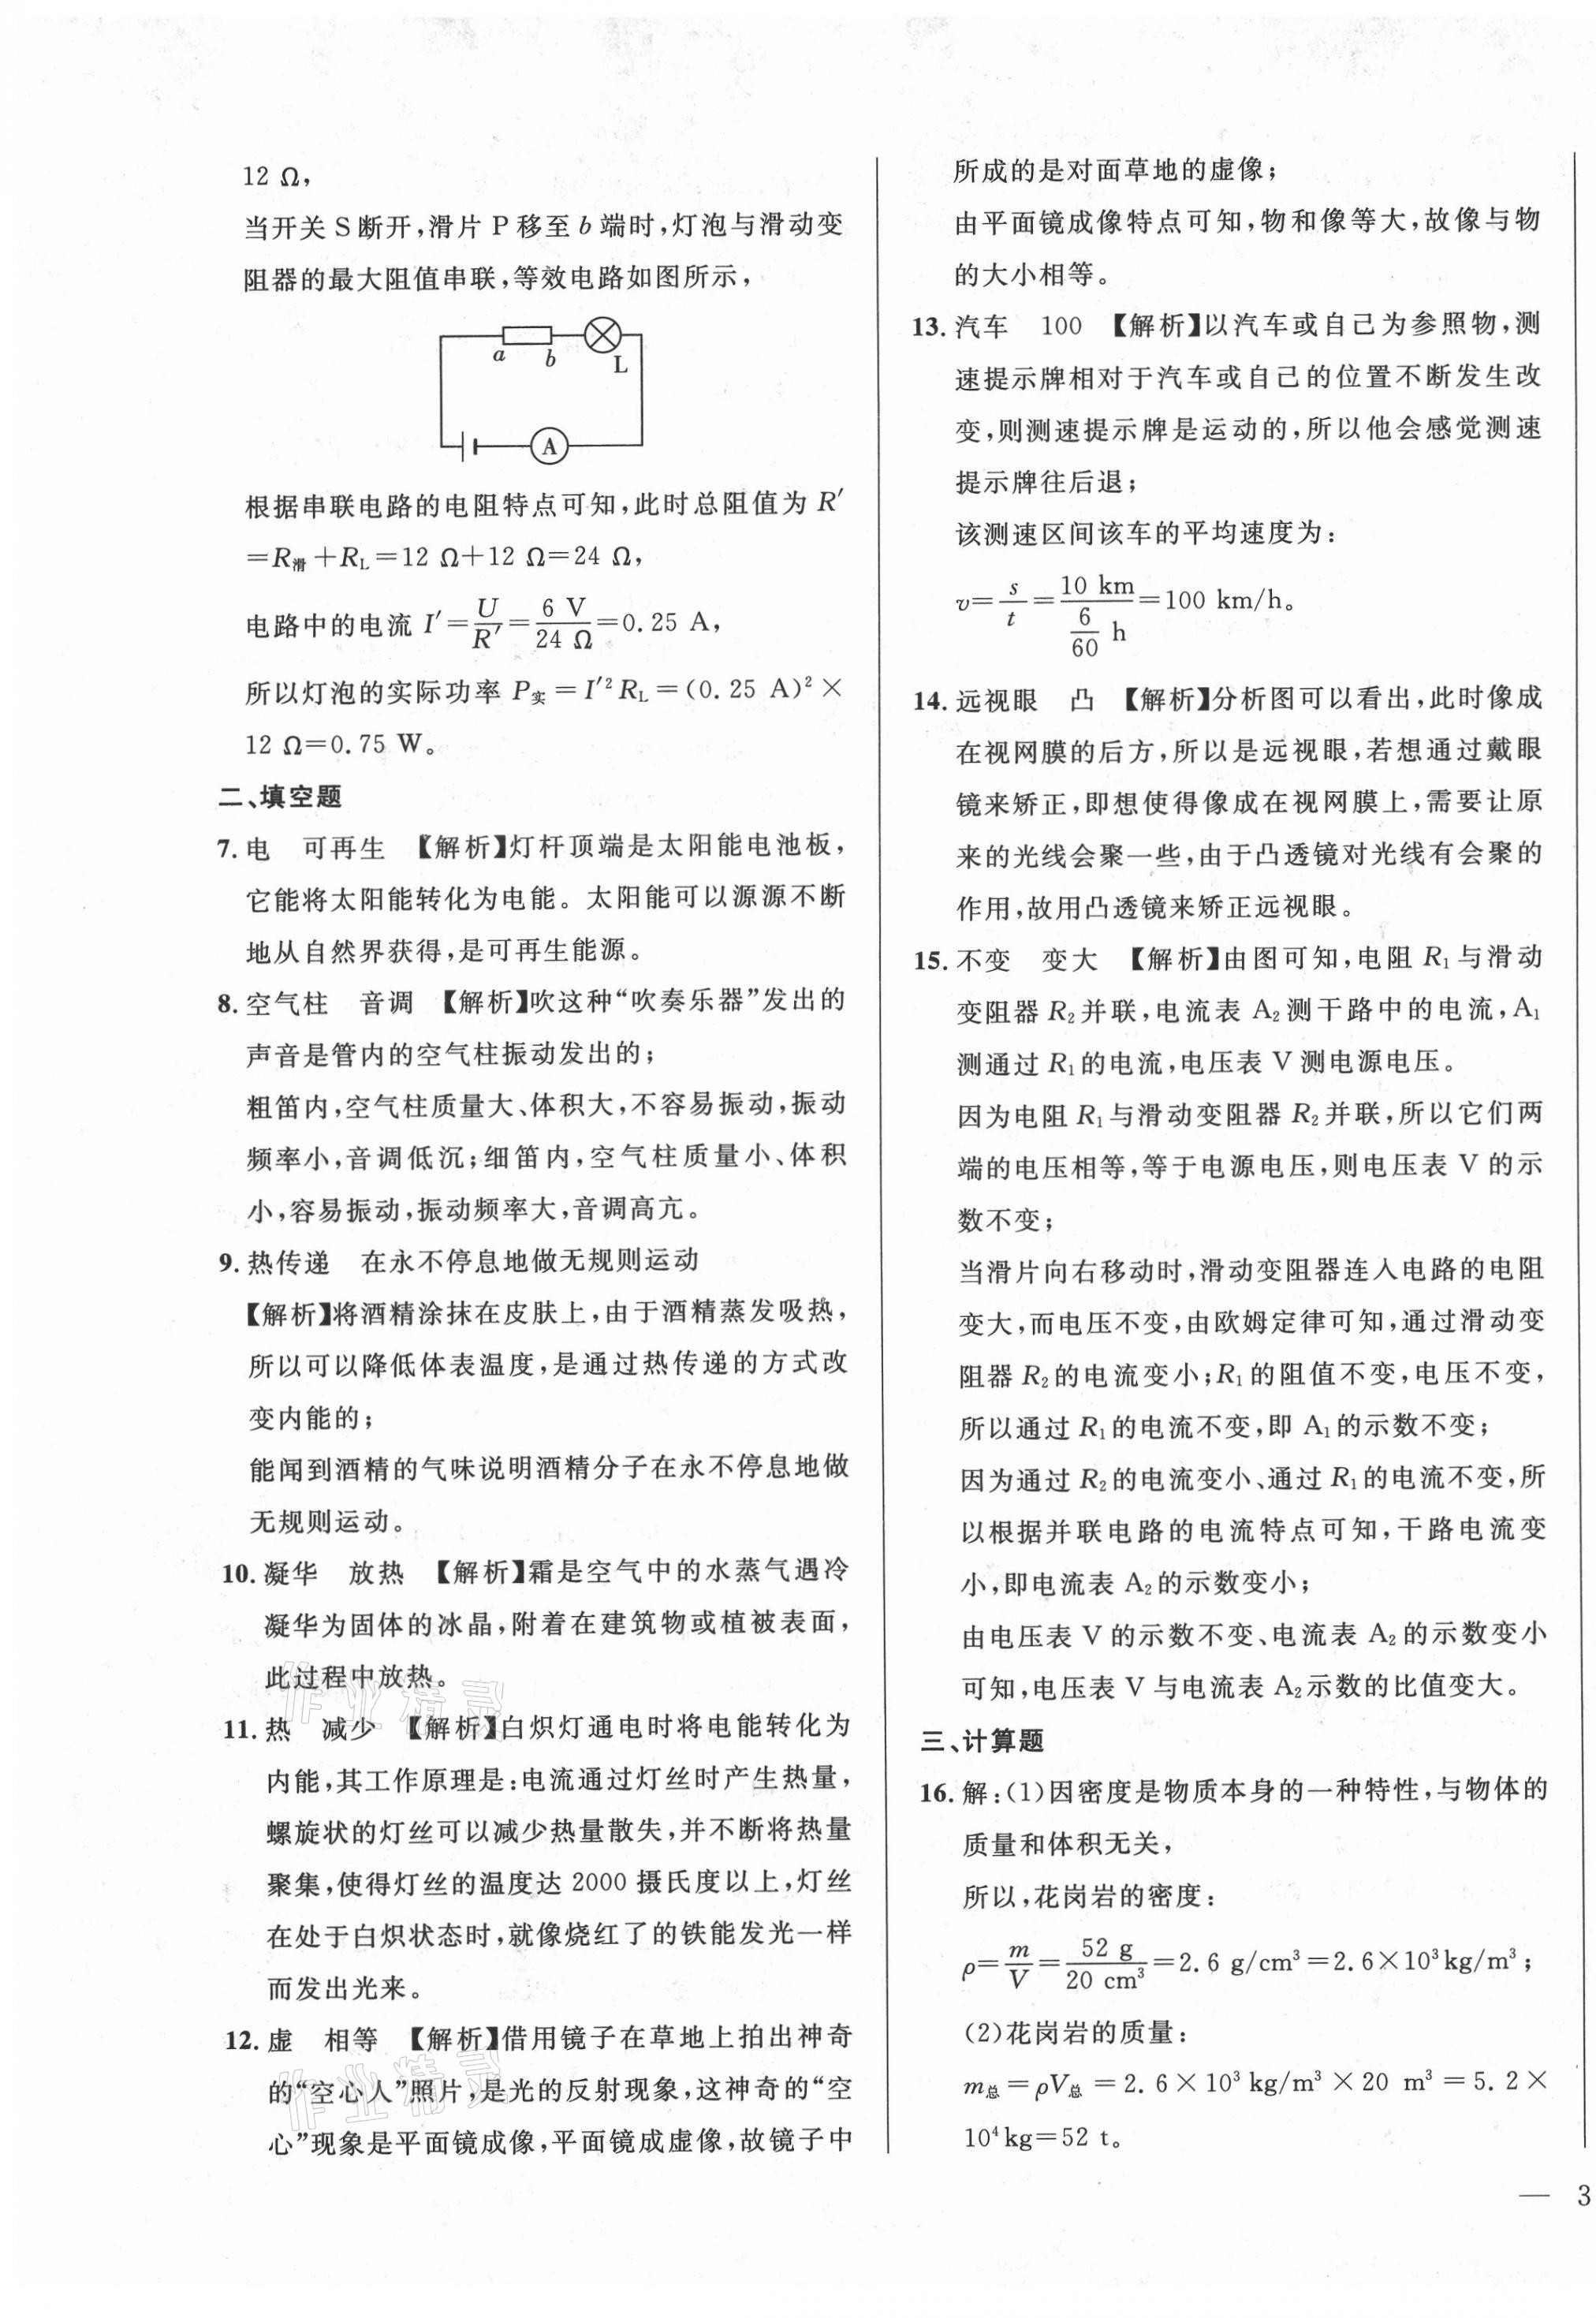 12 Ω，
当开关 S 断开，滑片 P 移至 b 端时，灯泡与滑动变
阻器的最大阻值串联，等效电路如图所示，
a b L
A
根据串联电路的电阻特点可知，此时总阻值为 R′
＝R滑＋RL＝12 Ω＋12 Ω＝24 Ω，
电路中的电流 I′＝U/R′＝6 V/24 Ω＝0.25 A，
所以灯泡的实际功率 P实＝I′²RL＝(0.25 A)²×
12 Ω＝0.75 W。
二、填空题
7. 电 可再生 【解析】灯杆顶端是太阳能电池板，
它能将太阳能转化为电能。太阳能可以源源不断
地从自然界获得，是可再生能源。
8. 空气柱 音调 【解析】吹这种“吹奏乐器”发出的
声音是管内的空气柱振动发出的；
粗笛内，空气柱质量大、体积大，不容易振动，振动
频率小，音调低沉；细笛内，空气柱质量小、体积
小，容易振动，振动频率大，音调高亢。
9. 热传递 在永不停息地做无规则运动
【解析】将酒精涂抹在皮肤上，由于酒精蒸发吸热，
所以可以降低体表温度，是通过热传递的方式改
变内能的；
能闻到酒精的气味说明酒精分子在永不停息地做
无规则运动。
10. 凝华 放热 【解析】霜是空气中的水蒸气遇冷
凝华为固体的冰晶，附着在建筑物或植被表面，
此过程中放热。
作业精灵
11. 热 减少 【解析】白炽灯通电时将电能转化为
内能，其工作原理是：电流通过灯丝时产生热量，
螺旋状的灯丝可以减少热量散失，并不断将热量
聚集，使得灯丝的温度达 2000 摄氏度以上，灯丝
在处于白炽状态时，就像烧红了的铁能发光一样
而发出光来。
12. 虚 相等 【解析】借用镜子在草地上拍出神奇
的“空心人”照片，是光的反射现象，这神奇的“空
作业精灵
心”现象是平面镜成像，平面镜成虚像，故镜子中
所成的是对面草地的虚像；
由平面镜成像特点可知，物和像等大，故像与物
的大小相等。
13. 汽车 100 【解析】以汽车或自己为参照物，测
速提示牌相对于汽车或自己的位置不断发生改
变，则测速提示牌是运动的，所以他会感觉测速
提示牌往后退；
该测速区间该车的平均速度为：
v＝s/t＝10 km/(6/60 h)＝100 km/h。
14. 远视眼 凸 【解析】分析图可以看出，此时像成
在视网膜的后方，所以是远视眼，若想通过戴眼
镜来矫正，即想使得像成在视网膜上，需要让原
来的光线会聚一些，由于凸透镜对光线有会聚的
作用，故用凸透镜来矫正远视眼。
15. 不变 变大 【解析】由图可知，电阻 R₁ 与滑动
变阻器 R₂ 并联，电流表 A₂ 测干路中的电流，A₁
测通过 R₁ 的电流，电压表 V 测电源电压。
因为电阻 R₁ 与滑动变阻器 R₂ 并联，所以它们两
端的电压相等，等于电源电压，则电压表 V 的示
数不变；
当滑片向右移动时，滑动变阻器连入电路的电阻
变大，而电压不变，由欧姆定律可知，通过滑动变
阻器 R₂ 的电流变小；R₁ 的阻值不变，电压不变，
所以通过 R₁ 的电流不变，即 A₁ 的示数不变；
因为通过 R₂ 的电流变小、通过 R₁ 的电流不变，所
以根据并联电路的电流特点可知，干路电流变
小，即电流表 A₂ 的示数变小；
由电压表 V 的示数不变、电流表 A₂ 的示数变小
可知，电压表 V 与电流表 A₂ 示数的比值变大。
三、计算题
16. 解：(1)因密度是物质本身的一种特性，与物体的
质量和体积无关，
所以，花岗岩的密度：
ρ＝m/V＝52 g/20 cm³＝2.6 g/cm³＝2.6×10³kg/m³；
(2)花岗岩的质量：
m总＝ρV总＝2.6×10³ kg/m³×20 m³＝5.2×
10⁴kg＝52 t。
— 3